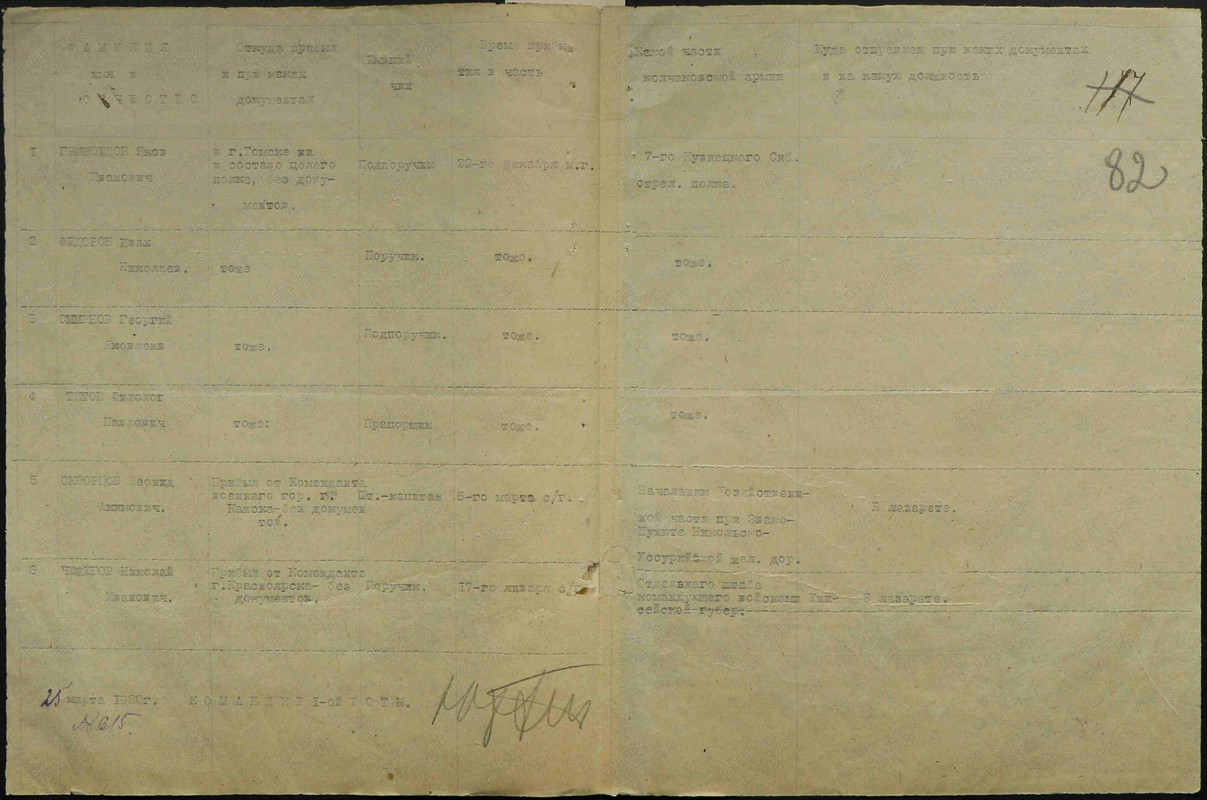 ФАМИЛИЯ
имя и
ОТЧЕСТВО
Откуда прибыл
и при каких
документах
Бывший
чин
Время прибы-
тия в часть
Какой части
колчаковской армии
Куда отправлен при каких документах
и на какую должность
117
82
1
Яков
Иванович
в г.Томске
в составе целого
полка, без доку-
ментов.
Подпоручик
22-го декабря м.г.
7-го Кузнецкого Сиб.
стрел. полка.
2
ФЕДОРОВ Иван
Николаев.
тоже
Поручик.
тоже.
тоже.
3
СМИРНОВ Георгий
Яковлевич
тоже.
Подпоручик.
тоже.
тоже.
4
ТИТОВ
Павлович
тоже:
Прапорщик
тоже.
тоже.
5
СКВОРЦОВ Леонид
Акимович.
Прибыл от Коменданта
военнаго гор. г.
Канска-без докумен
тов.
Шт.-капитан
5-го марта с/г.
Начальник Хозяйствен-
ной части при Эвако-
Пункте Никольско-
Уссурийской жел. дор.
В лазарете.
6
Николай
Иванович.
Прибыл от Коменданта
г.Красноярска без
документов.
Поручик.
17-го января с/г
Отдельнаго штаба
командующего войсками Ени-
сейской губер.
В лазарете.
25 марта 1920г.
КОМАНДИР 1-ой РОТЫ.
№ 615.